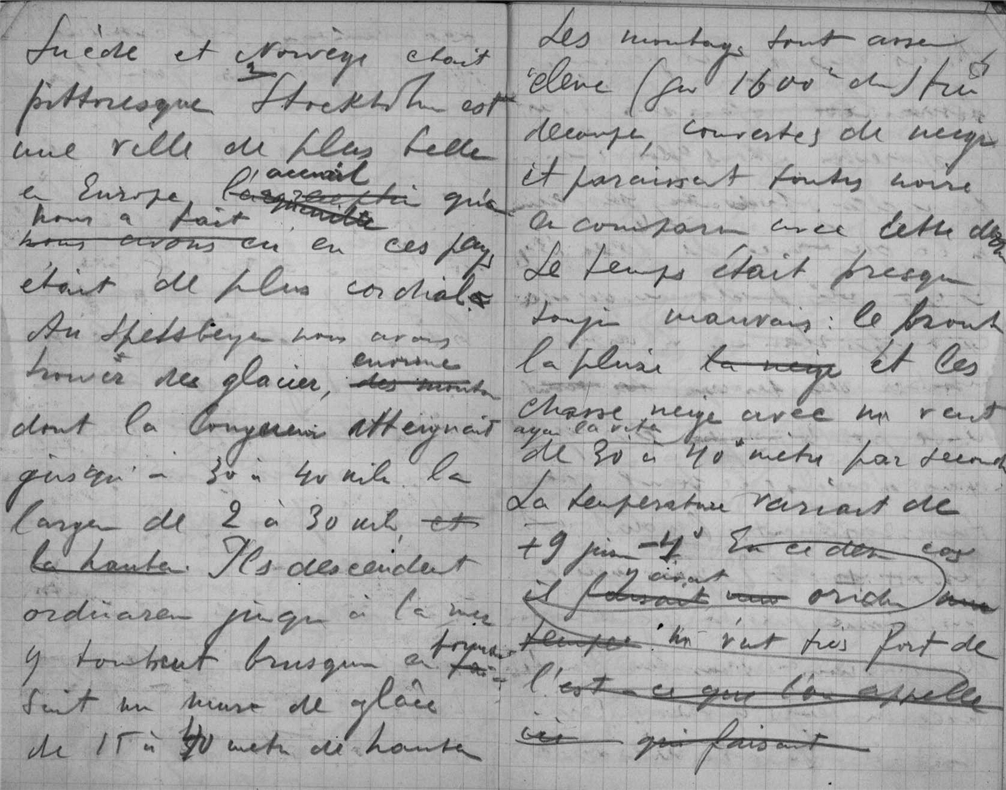 Suède et Norvège etait
pittoresque Stockholm est
une ville de plus belle
en Europe l'accueil qu'on
nous a fait
nous avons eu en ces pays
était de plus cordial.
Au Spetsbergen nous avons
trouvér des glacier, enorme
dont la longueur atteignait
jusqu'à 30 à 40 mils la
largeu de 2 à 30 mil, et
la hauteu. Ils descendent
ordinairem jusqu à la mer
y tombent brusquem en
un murs de glâce
de 15 à 40 metr de hauteu
Les montags sont assez
éléve (jus 1600 ) très
decoupe, couvertes de neige
et paraissent toutes noire
en comparn avec cette
Le temps était presque
toujou mauvais: le brouil
la pluie la neige et les
chasse neige avec un vent
ayan la vite
de 30 à 40 metre par second
La temperature variant de
+9 jusu -4° En ce dern cas
il y avait
faisait
temper un vent très fort de
l'est ce que l'on appelle
ici qui faisait